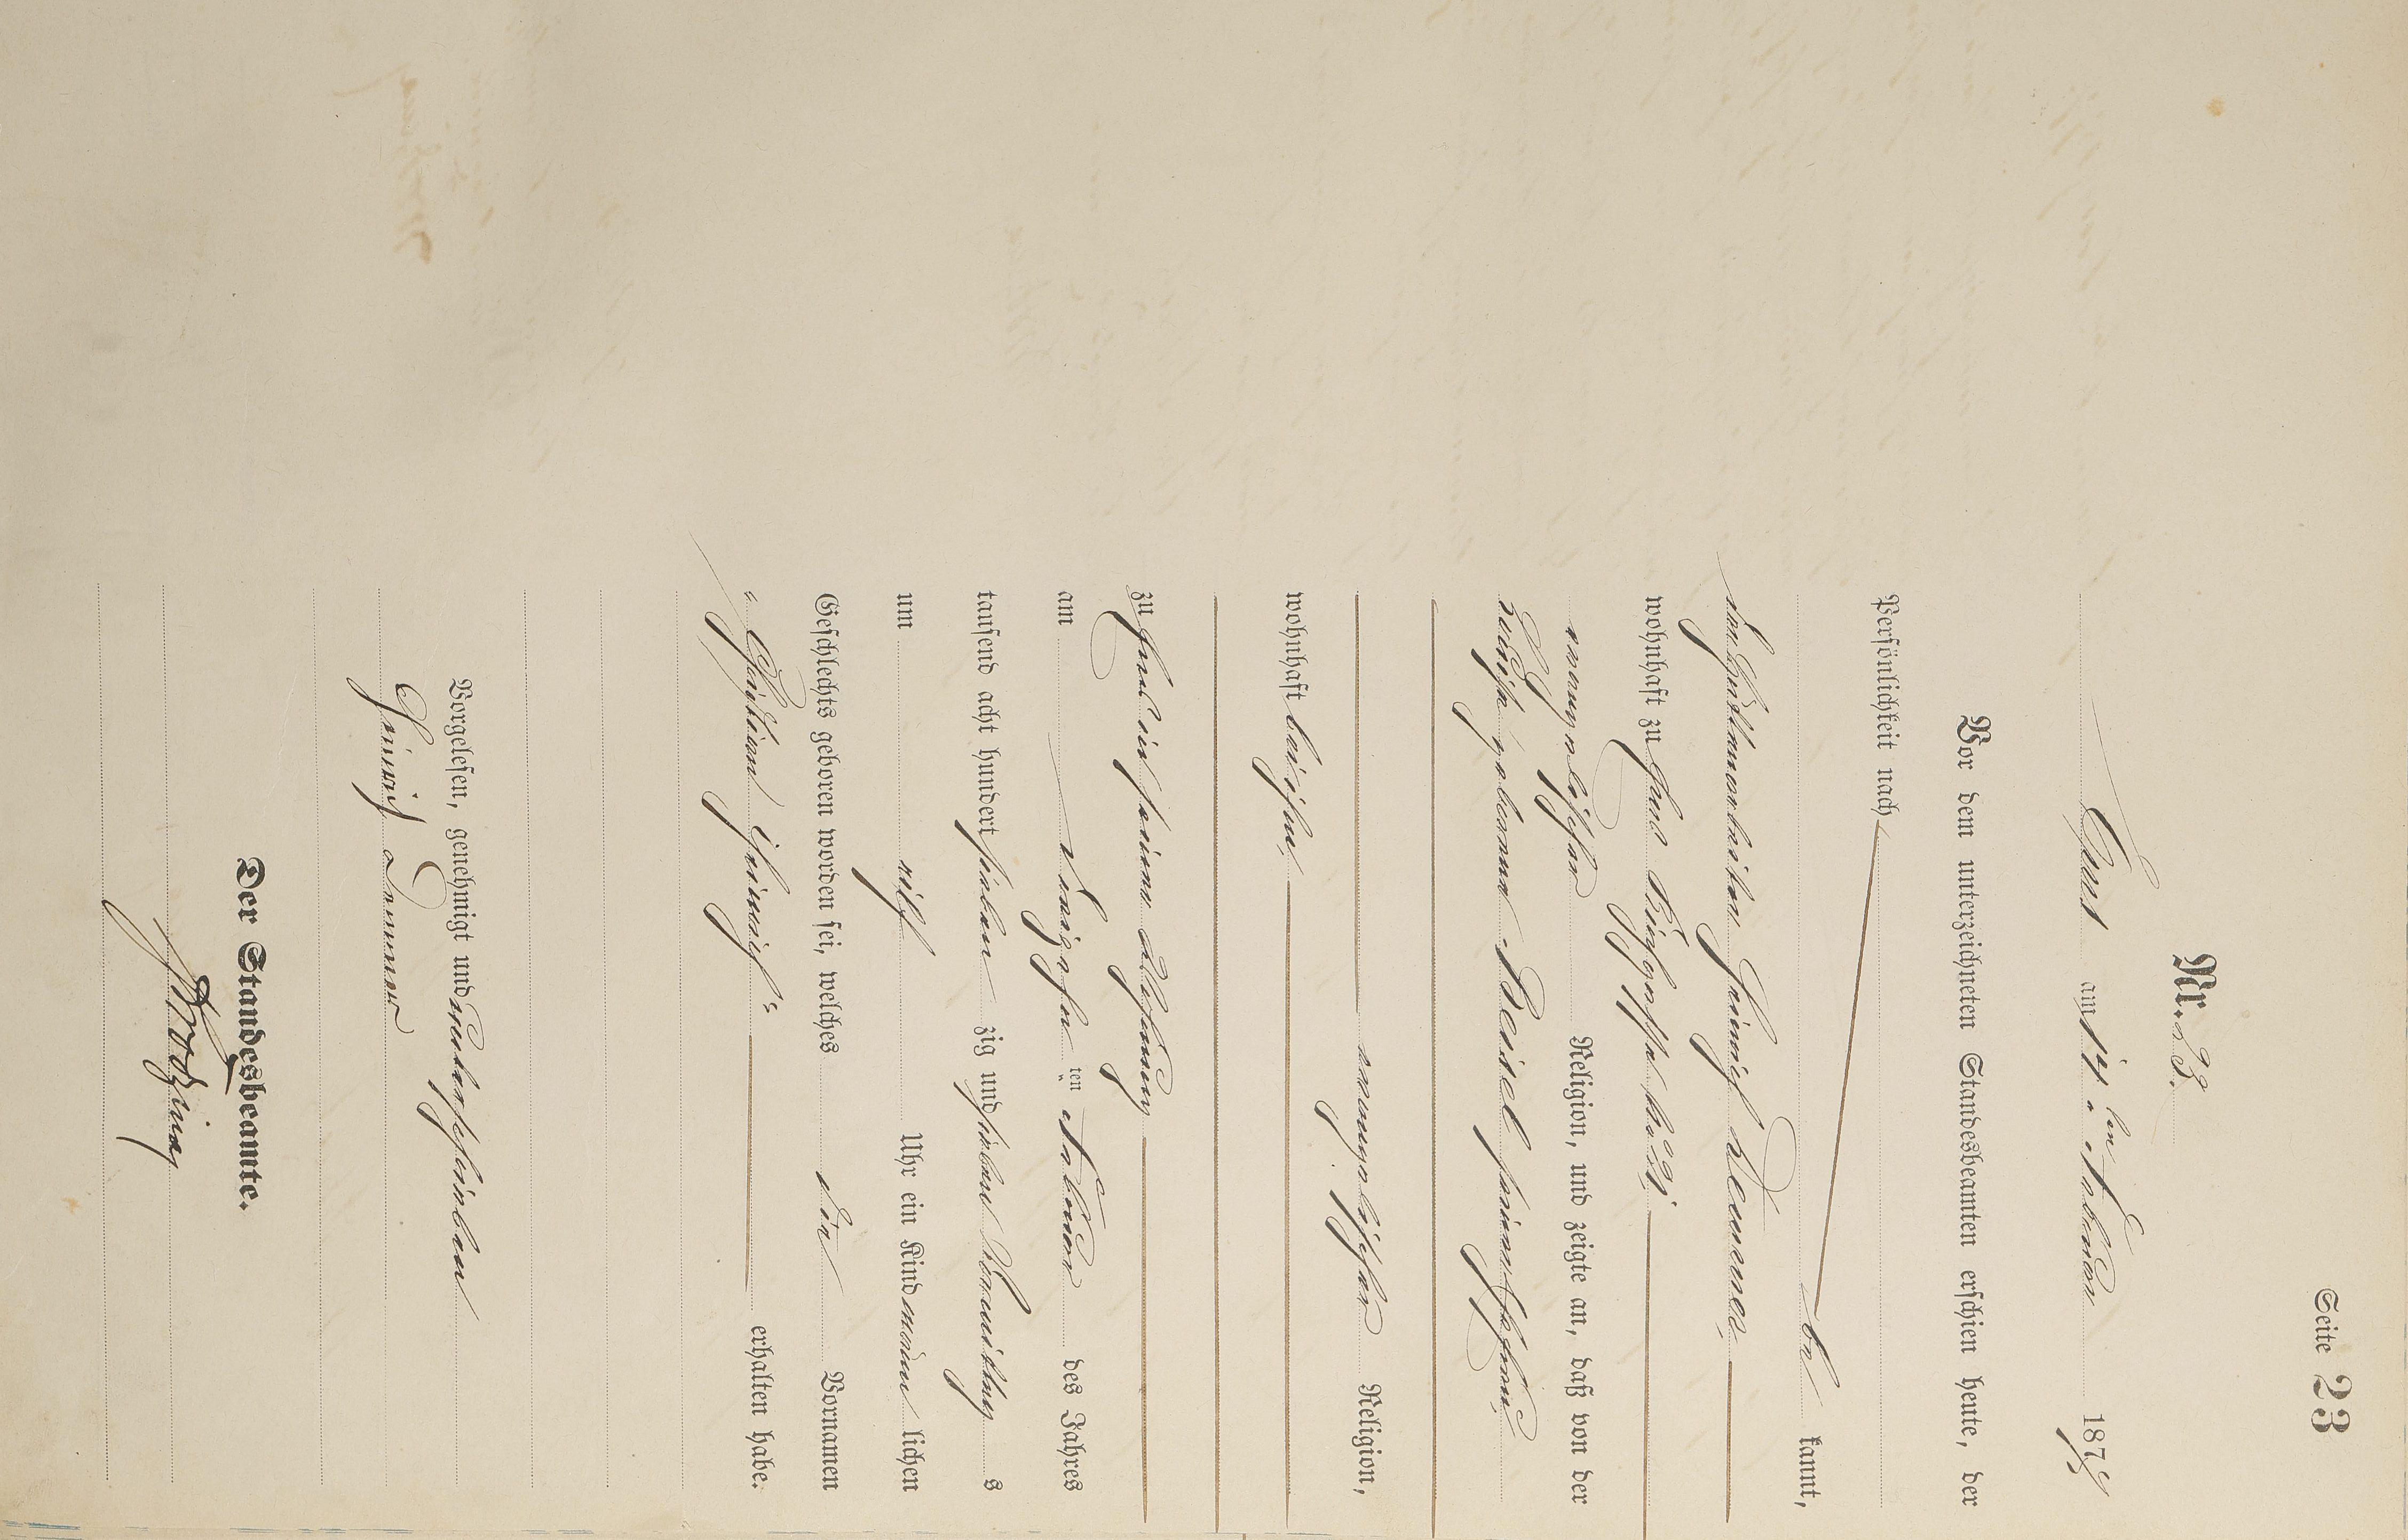 Seite 23
Nr. 23.
am 14ten Februar 1877
Vor dem unterzeichneten Standesbeamten erschien heute, der
Persönlichkeit nach
be kannt,
Heinrich Demmer,
wohnhaft zu No 21,
evangelischer Religion, und zeigte an, daß von der
Louise geborene Beisel seiner Ehefrau
evangelischer Religion,
wohnhaft bei ihm,
zu in seiner Wohnung
am ten Februar des Jahres
tausend acht hundert sieben zig und sieben Vormittag s
um elf Uhr ein Kind männ lichen
Geschlechts geboren worden sei, welches die Vornamen
„ Heinrich“ erhalten habe.
Vorgelesen, genehmigt und unterschrieben
Heinrich Demmer
Der Standesbeamte.